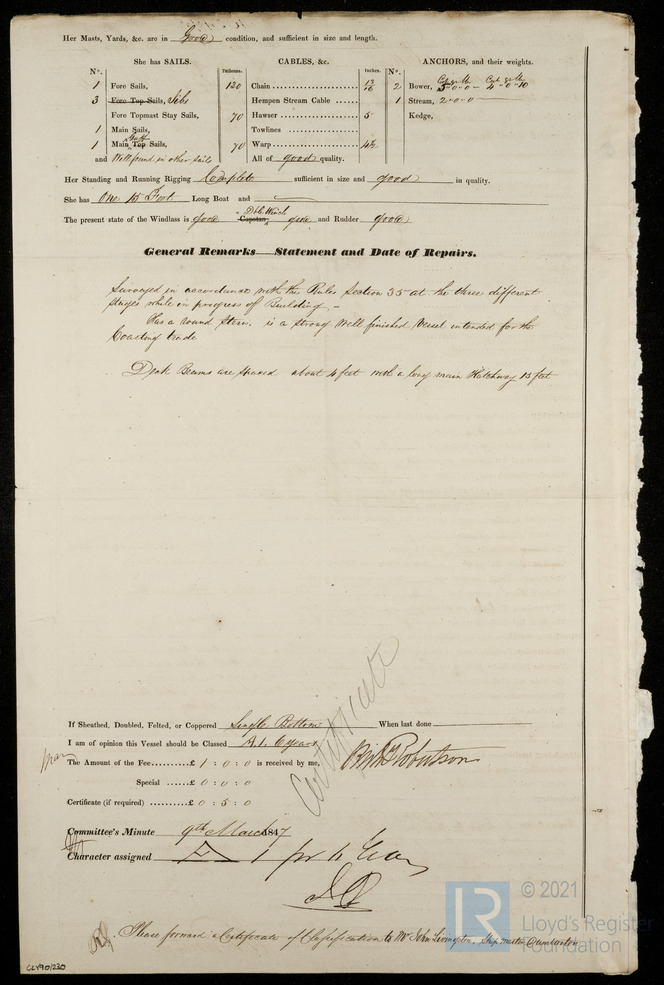 Her Masts, Yards, &c. are in Good condition, and sufficient in size and length.
She has SAILS.
CABLES, &c.
ANCHORS, and their weights.
N°.
Fathoms.
Inches.
N°.
1 Fore Sails,
Chain 120 13/16
2 Bower, 5-0-0 4-0-10
3 Fore Top Sails, Jibs
Hempen Stream Cable
1 Stream, 2-0-0
Fore Topmast Stay Sails,
Hawser 70 5
Kedge,
1 Main Sails,
Towlines
1 Main Gaff Top Sails,
Warp 70 4½
and Well found in other sails
All of good quality.
Her Standing and Running Rigging Complete sufficient in size and good in quality.
She has One 15 Foot Long Boat and
The present state of the Windlass is good Capstan Dble Winch good and Rudder good
General Remarks—Statement and Date of Repairs.
Surveyed in accordance with the Rules Section 35 at the three different
stages while in progress of Building –
Has a round Stern. is a strong well finished Vessel intended for the
Coasting trade
Deck Beams are spaced about 4 feet with a long main Hatchway 15 feet
If Sheathed, Doubled, Felted, or Coppered Single Bottom When last done
I am of opinion this Vessel should be Classed A.1. 6 years
The Amount of the Fee......£ 1 : 0 : 0 is received by me,
Robertson
Special ......£ 0 : 0 : 0
Certificate (if required) .........£ 0 : 5 : 0
Certificate
Committee's Minute 9th March 1847
Character assigned
Please forward a Certificate of Classification to Mr John Livingston, Ship master Dumbarton
CLY901/230
LR
© 2021
Lloyd's Register
Foundation